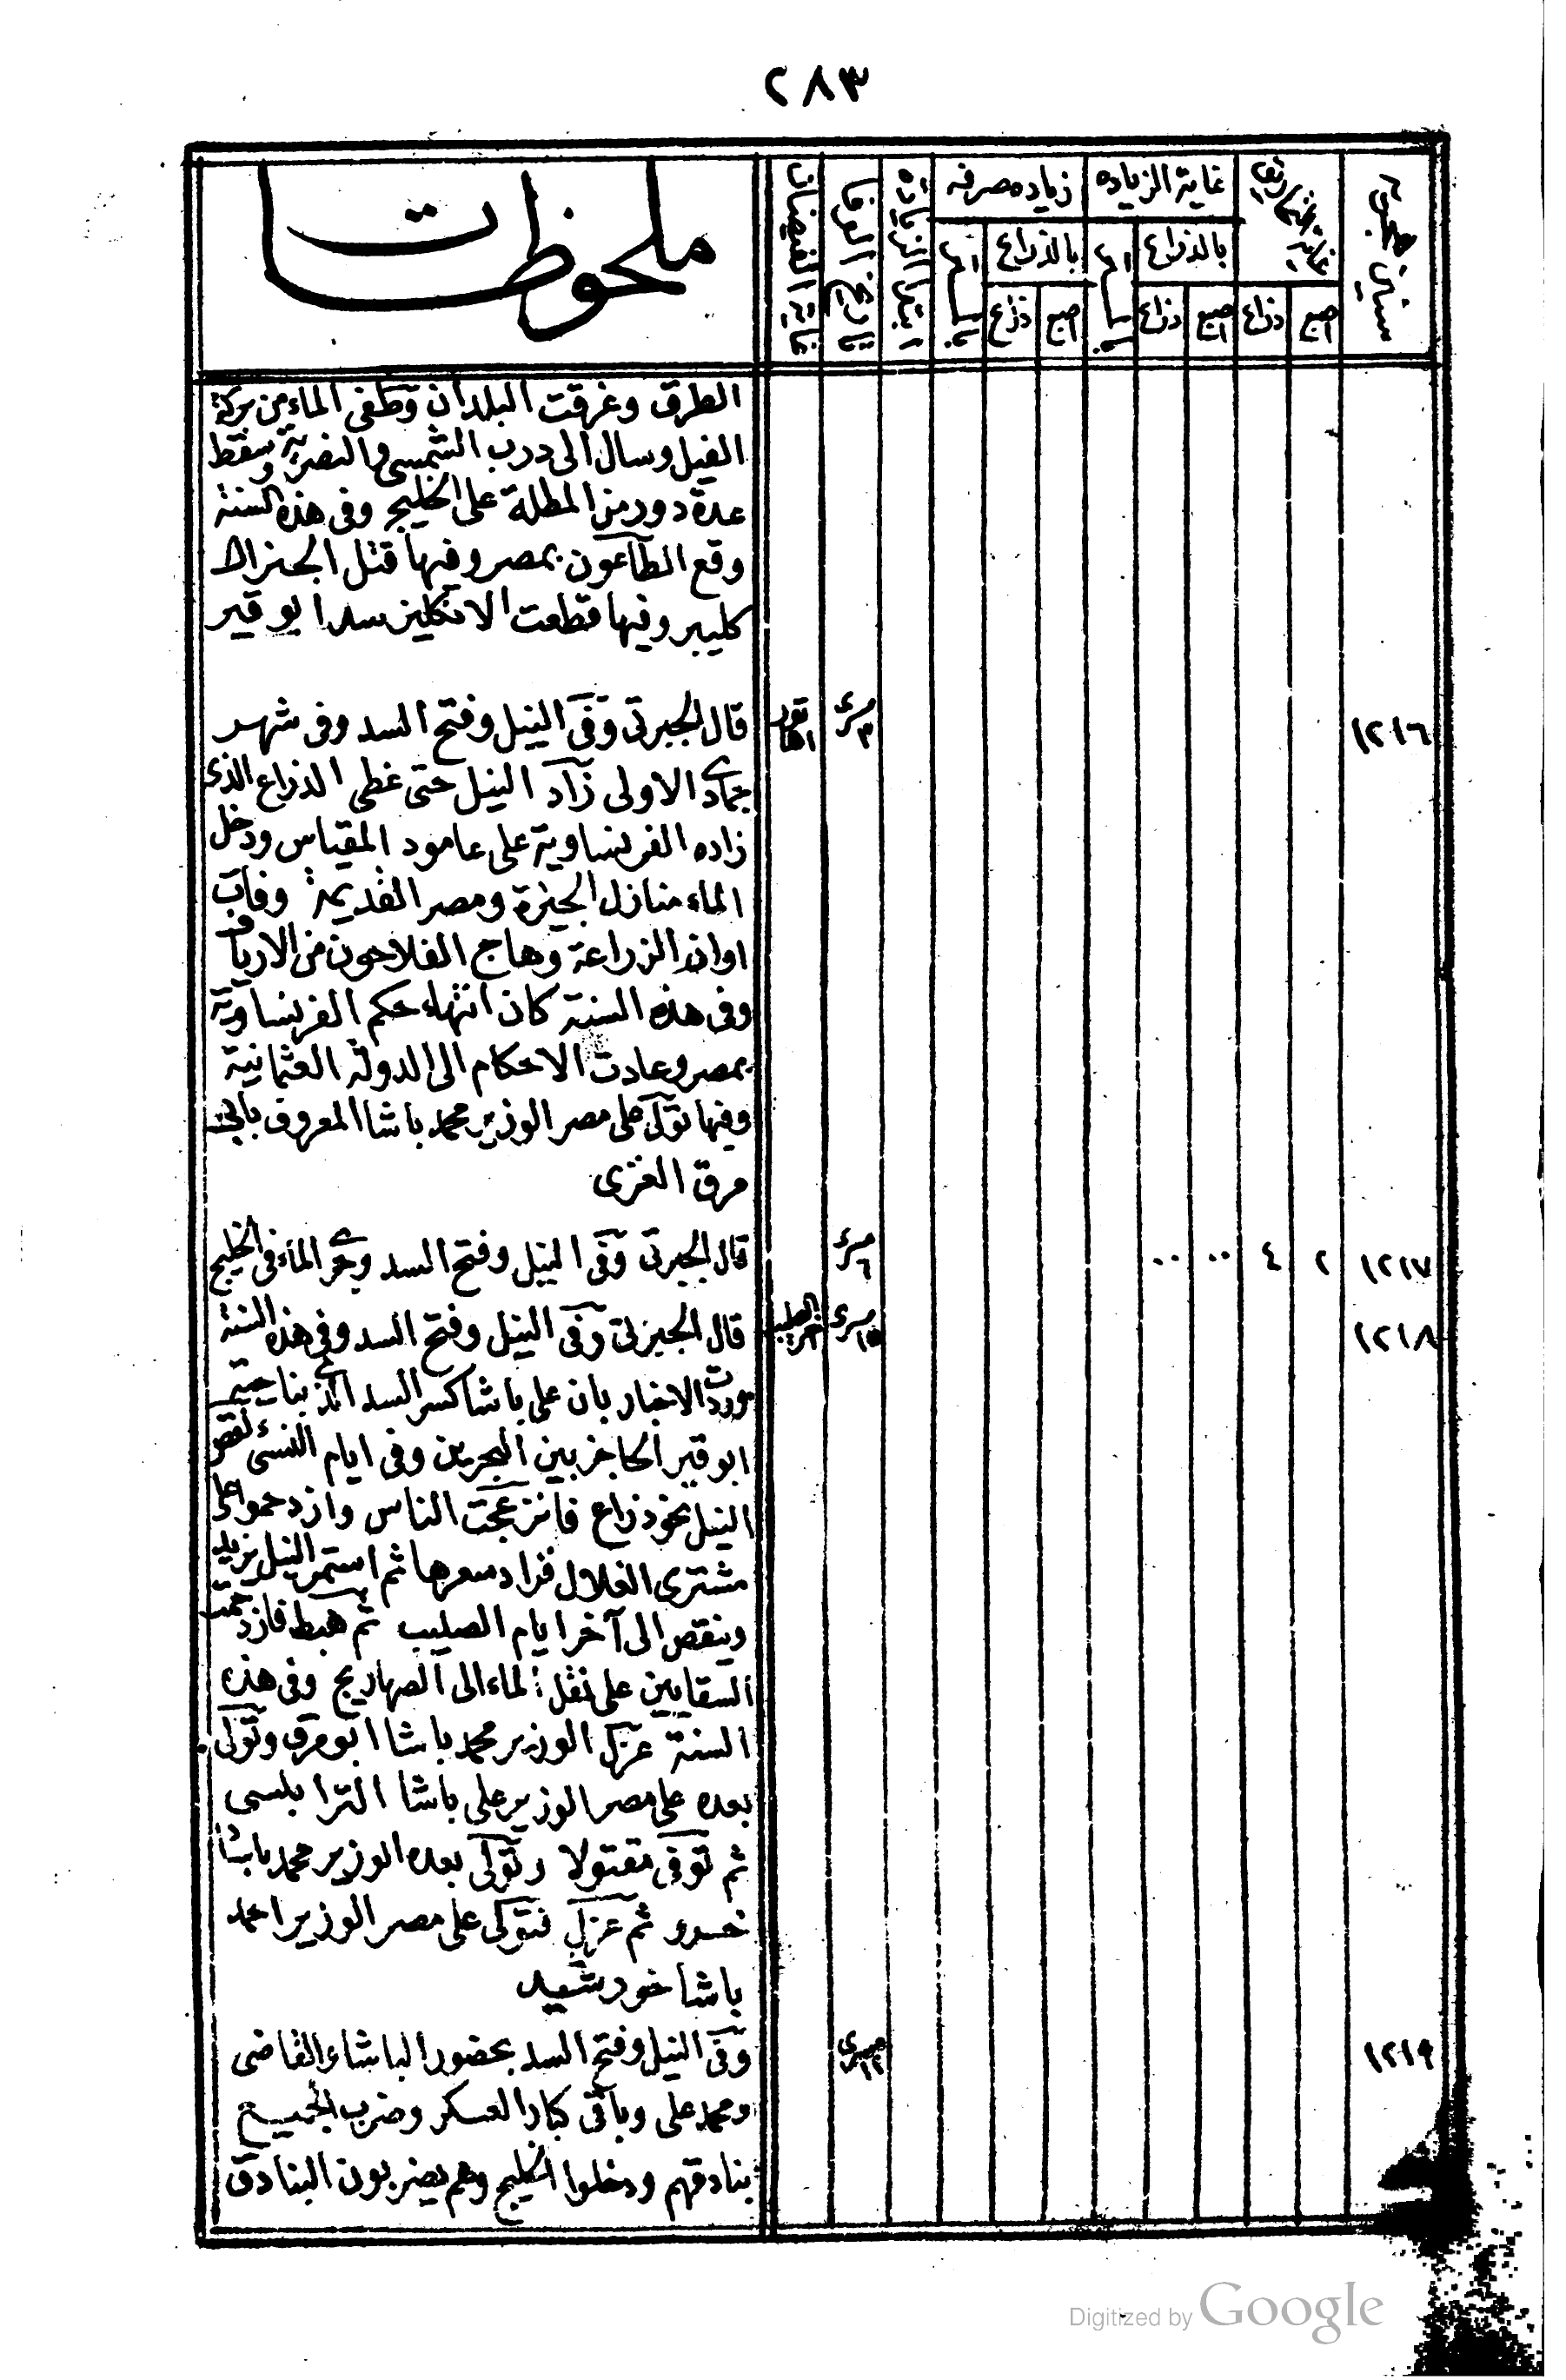 ٢٨٣
سنين هجرية
غاية التحاريق
غاية الزياده
زياده صرفه
ابتدا الزياده
تاريخ الوفا
غاية الفيضان
ملحوظات
بالذراع
بالذراع
اصبع
ذراع
اصبع
ذراع
اصبع
ذراع
الطرق وغرقت البلدان وطفى الماء من بركة
الفيل وسال الى درب الشمسى والنصرية وسقط
عدة دور من المطلة على الخليج وفى هذه السنة
وقع الطاعون بمصر وفيها قتل الجنرال
كليبر وفيها قطعت الانكليز سد ابو قير
١٢١٦
مسرى ٣
قال الجبرتى وَفَى النيل وفتح السد وفى شهر
جمادى الاولى زاد النيل حتى غطى الذراع الذى
زاده الفرنساوية على عامود المقياس ودخل
الماء منازل الجيزة ومصر القديمة وفات
اوان الزراعة وهاج الفلاحون من الارياف
وفى هذه السنة كان انتهاء حكم الفرنساوية
بمصر وعادت الاحكام الى الدولة العثمانية
وفيها تولى على مصر الوزير محمد باشا المعروف
مرق الغزى
١٢١٧ ٢ ٤ ٠٠ ٠٠ مسرى ٦ قال الجبرتى وَفَى النيل وفتح السد وجرى الماء فى الخليج
١٢١٨ مسرى ١٥ آخر الصليب قال الجبرتى وَفَى النيل وفتح السد وفى هذه السنة
وردت الاخبار بان على باشا كسر السد الذى بناحية
ابو قير الحاجز بين البحرين وفى ايام النسئ نقص
النيل نحو ذراع فانزعجت الناس وازدحموا على
مشترى الغلال فزاد سعرها ثم استمر النيل يزيد
وينقص الى آخر ايام الصليب ثم هبط فازدحمت
السقايين على نقل الماء الى الصهاريج وفى هذه
السنة عزل الوزير محمد باشا ابو مرق وتولى
بعده على مصر الوزير على باشا الترابلسى
ثم توفى مقتولا وتولى بعده الوزير محمد باشا
خسرو ثم عزل فتولى على مصر الوزير احمد
باشا خورشيد
١٢١٩ مسرى ١٢ وَفَى النيل وفتح السد بحضور الباشا والقاضى
ومحمد على وباقى كبار العسكر وضرب الجميع
بنادقهم ودخلوا الخليج وهم يضربون البنادق
Digitized by Google